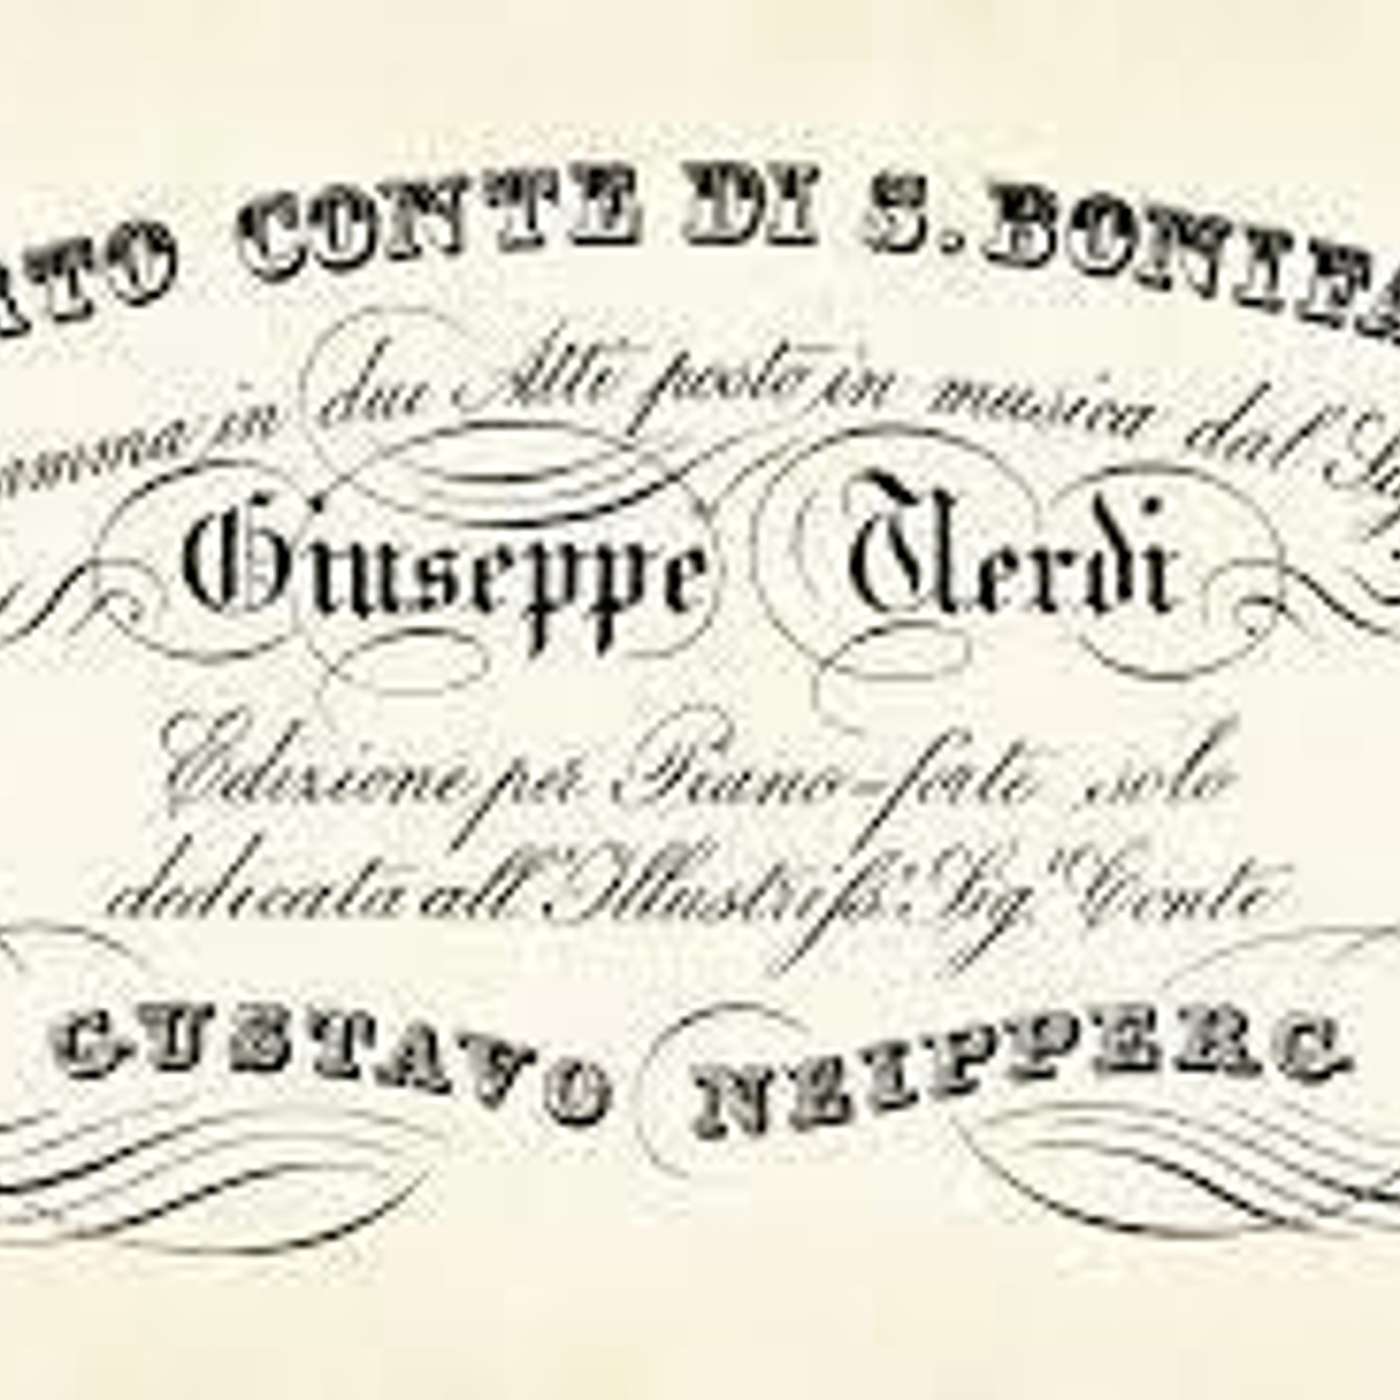 TO CONTE DI S. BONIFA
in due Atti posto in musica dal Sig
Giuseppe Verdi
Edizione per Piano-forte solo
dedicata all'Illustriss.º Sig. Conte
GUSTAVO NEIPPERG